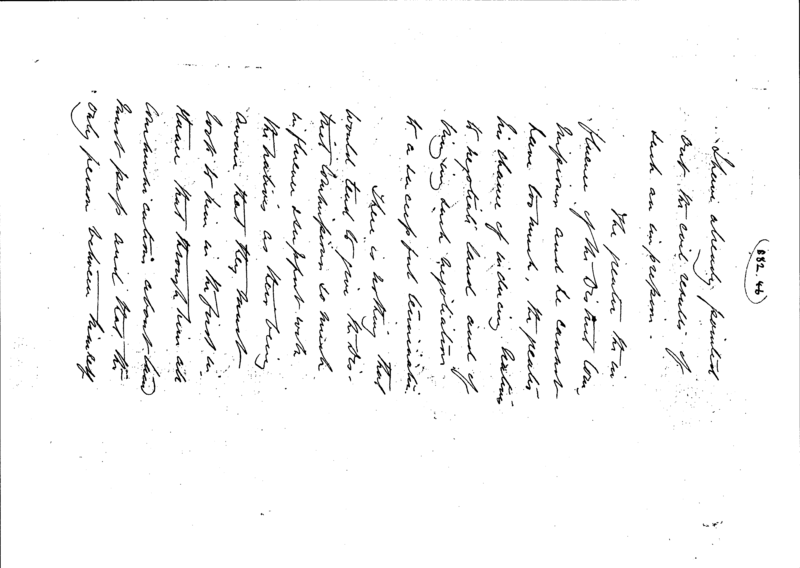 882.46
I have already pointed
out the evil results of
such an impression.
The greater the in
fluence of the District Com
missioner and he cannot
have too much, the greater
his chance of inducing natives
to negotiate land and of
bringing such negotiation
to a successful termination
There is nothing that
would tend to give the Dis-
trict Commissioner so much
influence & support with
the natives as their being
aware that they must
look to him in the first in
stance that through him all
communications about land
must pass and that the
only person between himself